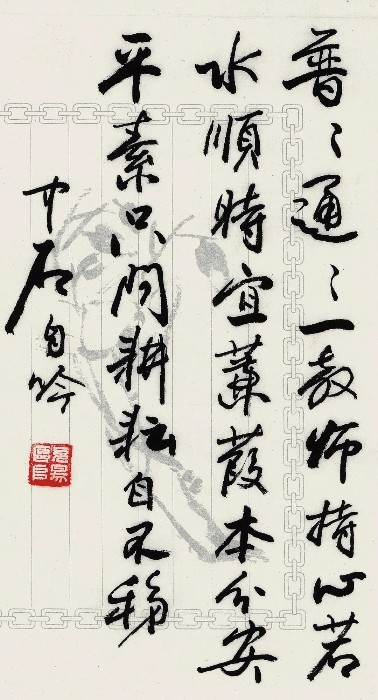 普〻通〻一教师持心若
水顺時宜蒹葭本分安
平素只问耕耘自不移
中石自吟